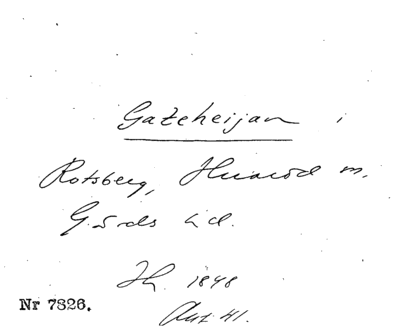 Gateheijan i
Rotsberg, Huaröd m.
G-ds hd.
Jh. 1848
Nr 7326.
Ant 41.